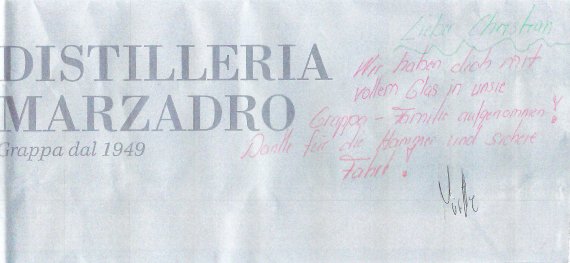 DISTILLERIA
MARZADRO
Grappa dal 1949
Lieber Christian
Wir haben dich mit
vollem Glas in unsre
Grappa - Familie aufgenommen!
Danke für die Hanzner und sichere
Fahrt!